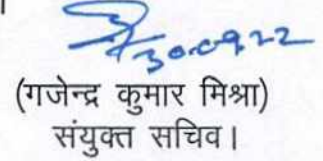 30.09.22
(गजेन्द्र कुमार मिश्रा)
संयुक्त सचिव।